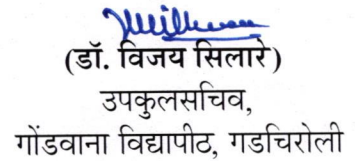 (डॉ. विजय सिलारे)
उपकुलसचिव,
गोंडवाना विद्यापीठ, गडचिरोली